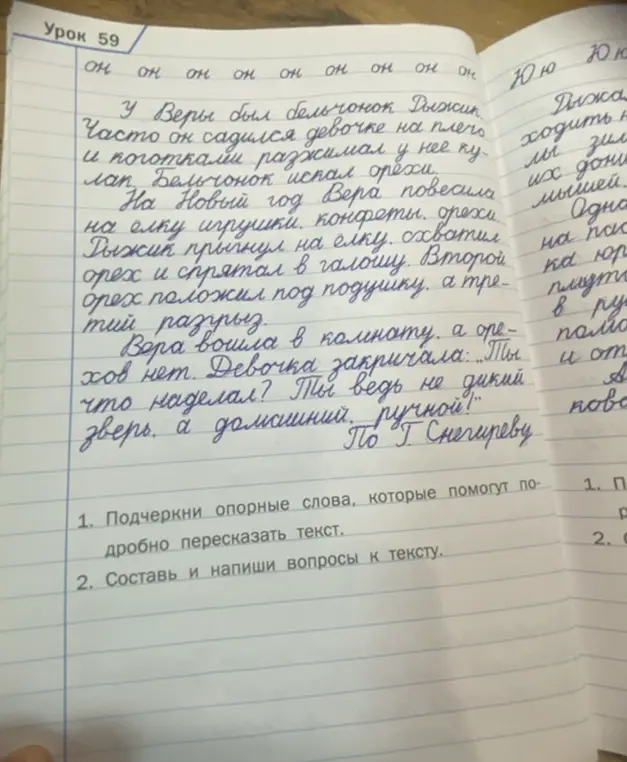 Урок 59
он он он он он он он он он
У Веры был бельчонок Рыжик.
Часто он садился девочке на плечо
и коготками разжимал у неё ку-
лак. Бельчонок искал орехи.
На Новый год Вера повесила
на ёлку игрушки, конфеты, орехи.
Рыжик прыгнул на ёлку, схватил
орех и спрятал в галошу. Второй
орех положил под подушку, а тре-
тий разгрыз.
Вера вошла в комнату, а оре-
хов нет. Девочка закричала: „Ты
что наделал? Ты ведь не дикий
зверь, а домашний, ручной!"
По Г. Снегирёву
1. Подчеркни опорные слова, которые помогут по-
дробно пересказать текст.
2. Составь и напиши вопросы к тексту.
Юю Юю
Рыжа
ходить н
мы зим
их
мышей.
Одна
на пас
ка юр
в ру
помо
и от
А
ково
1. П
2. С